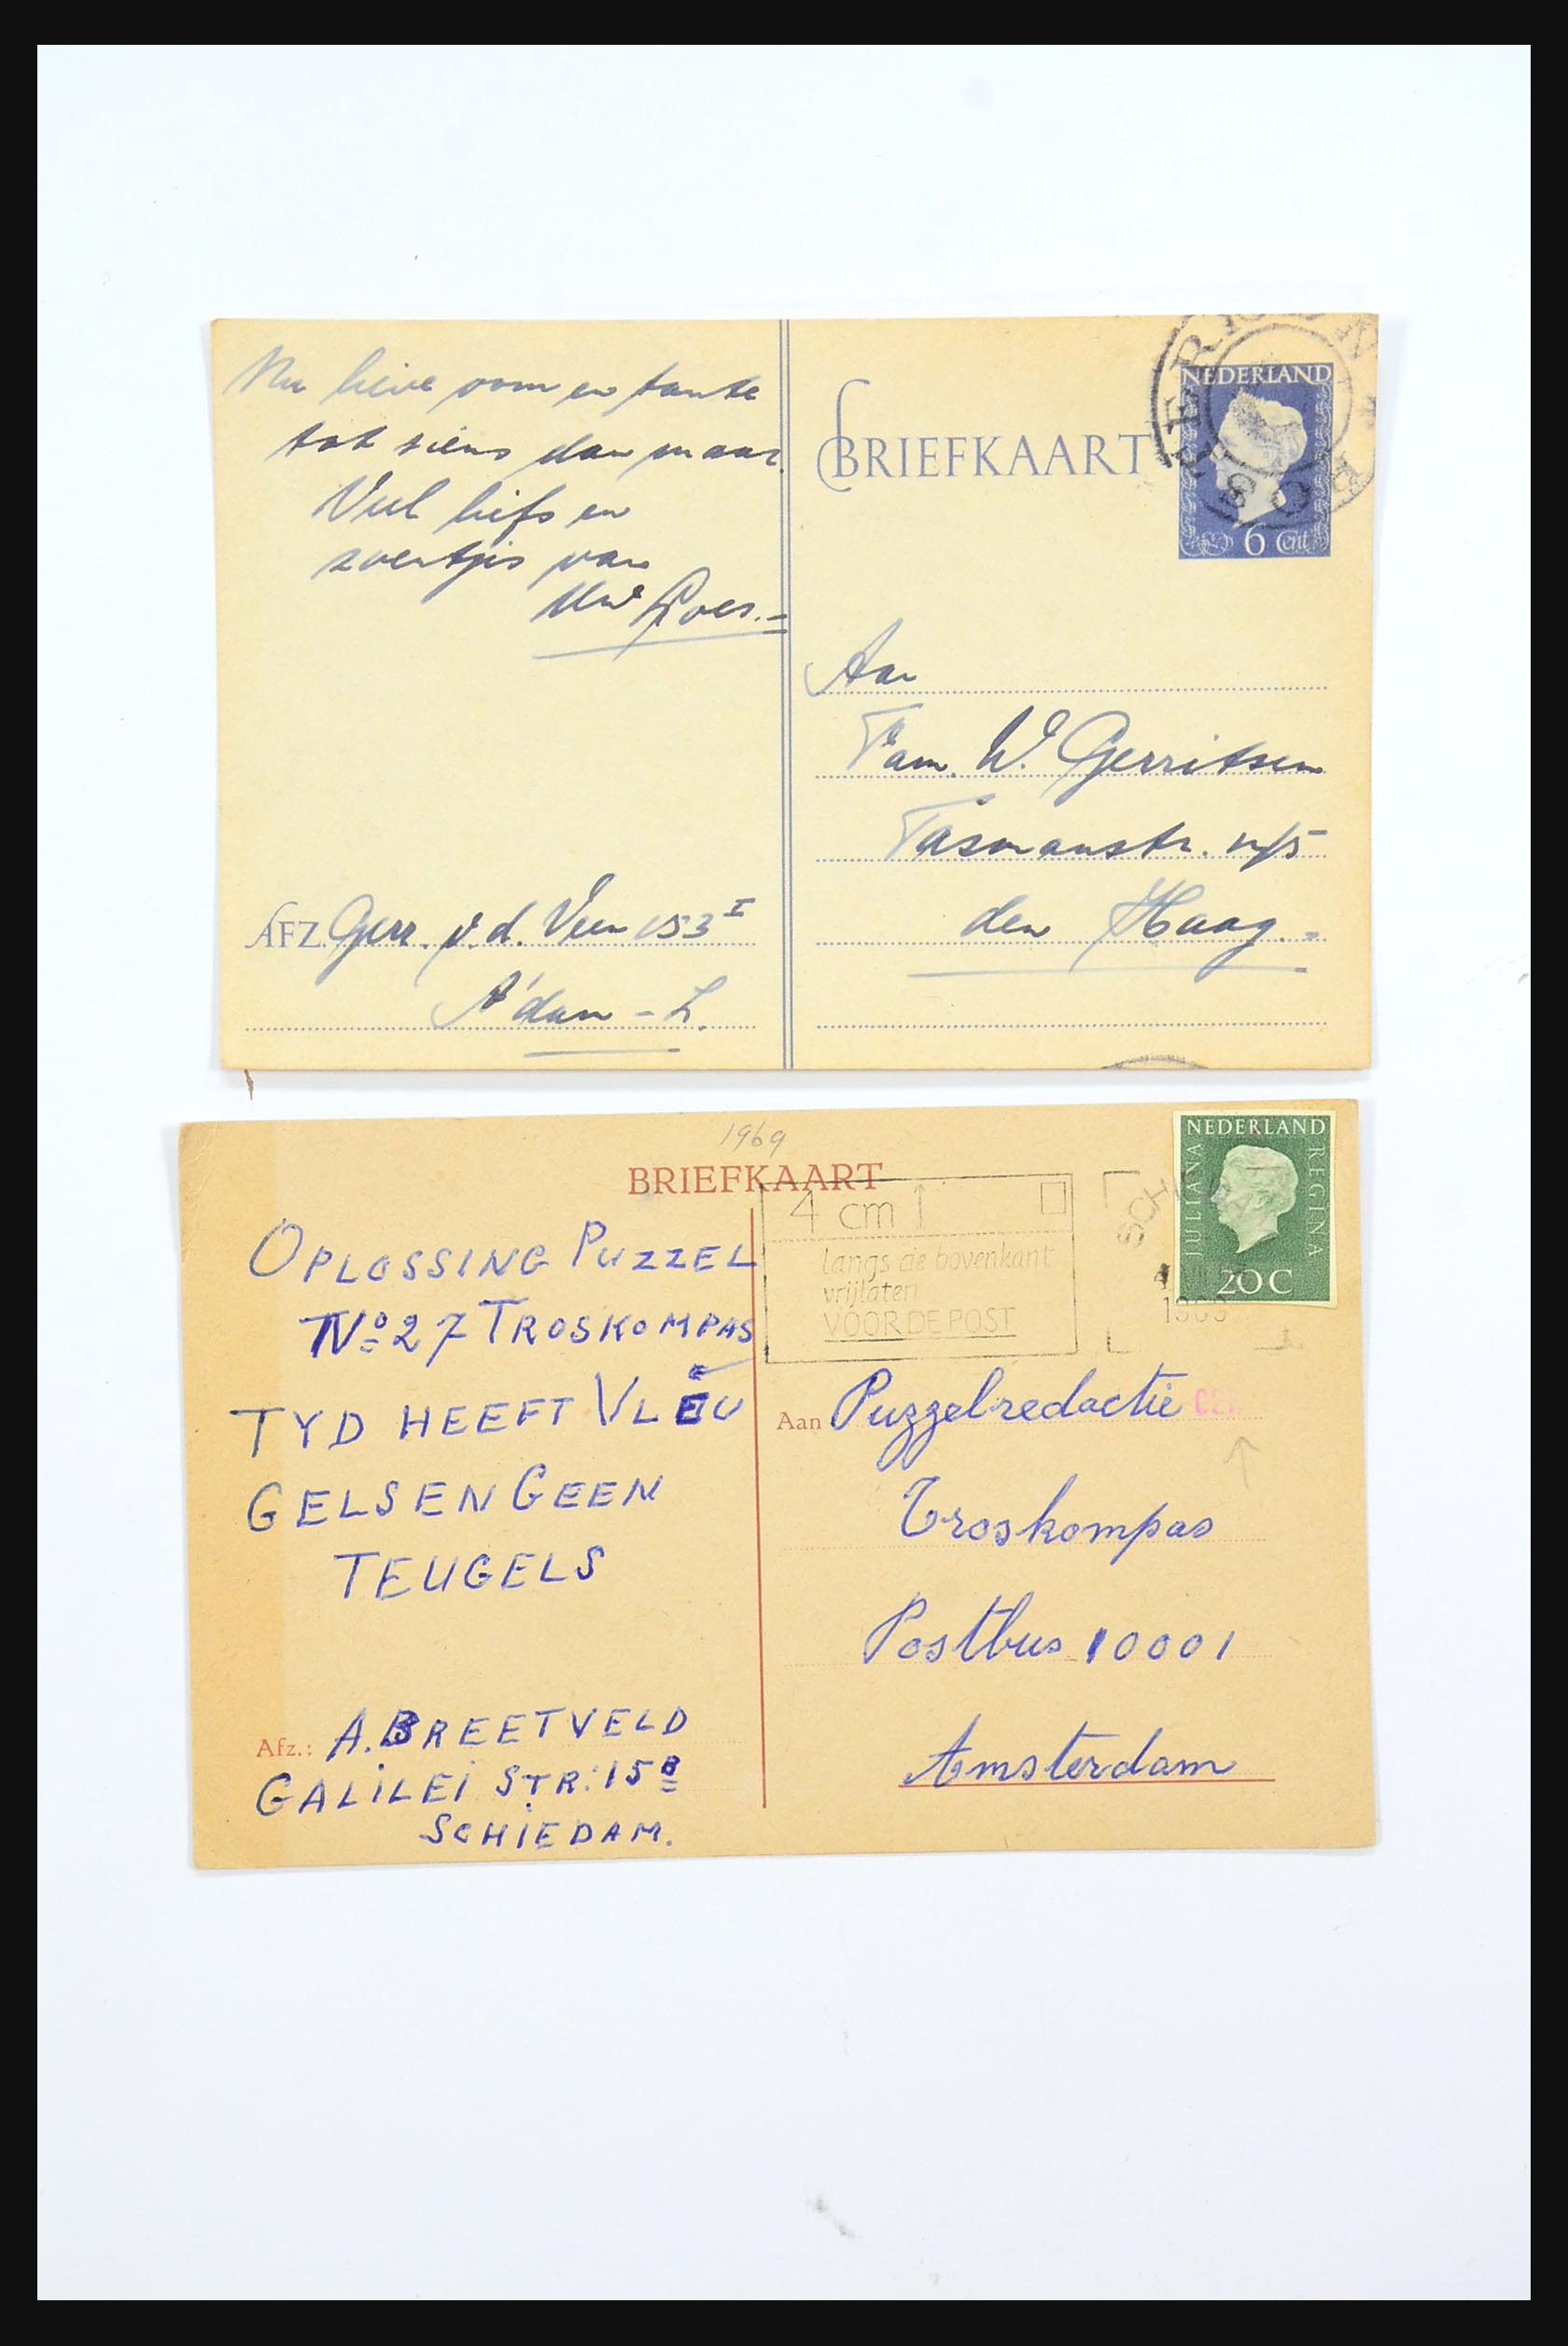 Nu lieve oom en tante
tot siens dan maar.
Veel liefs en
zoentjes van
Uw Loes.-
BRIEFKAART
NEDERLAND
6 Cent
Aan
Fam. W. Gerritsen
Tasmanstr.
den Haag.-
AFZ. Gerr. v.d. Veen 153 I
A'dam - Z.
1969
BRIEFKAART
NEDERLAND
JULIANA
REGINA
20 C
4 cm
langs de bovenkant
vrijlaten
VOOR DE POST
SCHI
1969
OPLOSSING PUZZEL
No 27 TROSKOMPAS
TYD HEEFT VLEU
GELS EN GEEN
TEUGELS
Afz.: A. BREETVELD
GALILEI STR: 15 B
SCHIEDAM.
Aan Puzzelredactie
Troskompas
Postbus 10001
Amsterdam